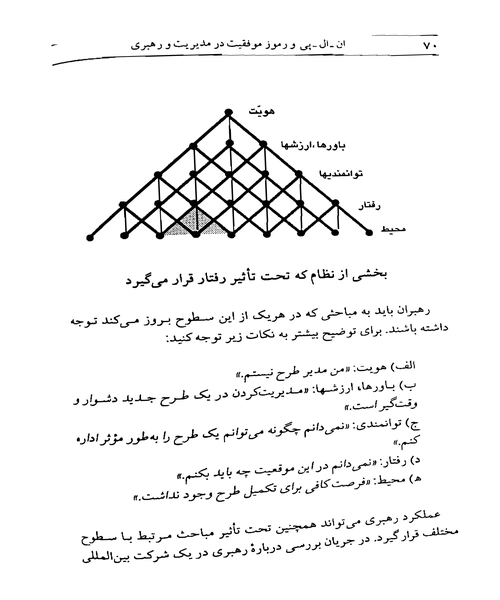 ۷۰ ان ـ ال ـ پی و رموز موفقیت در مدیریت و رهبری
هویّت
باورها،ارزشها
توانمندیها
رفتار
محیط
بخشی از نظام که تحت تأثیر رفتار قرار می‌گیرد
رهبران باید به مباحثی که در هریک از این سطوح بروز می‌کند توجه
داشته باشند. برای توضیح بیشتر به نکات زیر توجه کنید:
الف) هویت: «من مدیر طرح نیستم.»
ب) باورها، ارزشها: «مدیریت‌کردن در یک طرح جدید دشوار و
وقت‌گیر است.»
ج) توانمندی: «نمی‌دانم چگونه می‌توانم یک طرح را به‌طور مؤثر اداره
کنم.»
د) رفتار: «نمی‌دانم در این موقعیت چه باید بکنم.»
ه) محیط: «فرصت کافی برای تکمیل طرح وجود نداشت.»
عملکرد رهبری می‌تواند همچنین تحت تأثیر مباحث مرتبط با سطوح
مختلف قرار گیرد. در جریان بررسی دربارهٔ رهبری در یک شرکت بین‌المللی